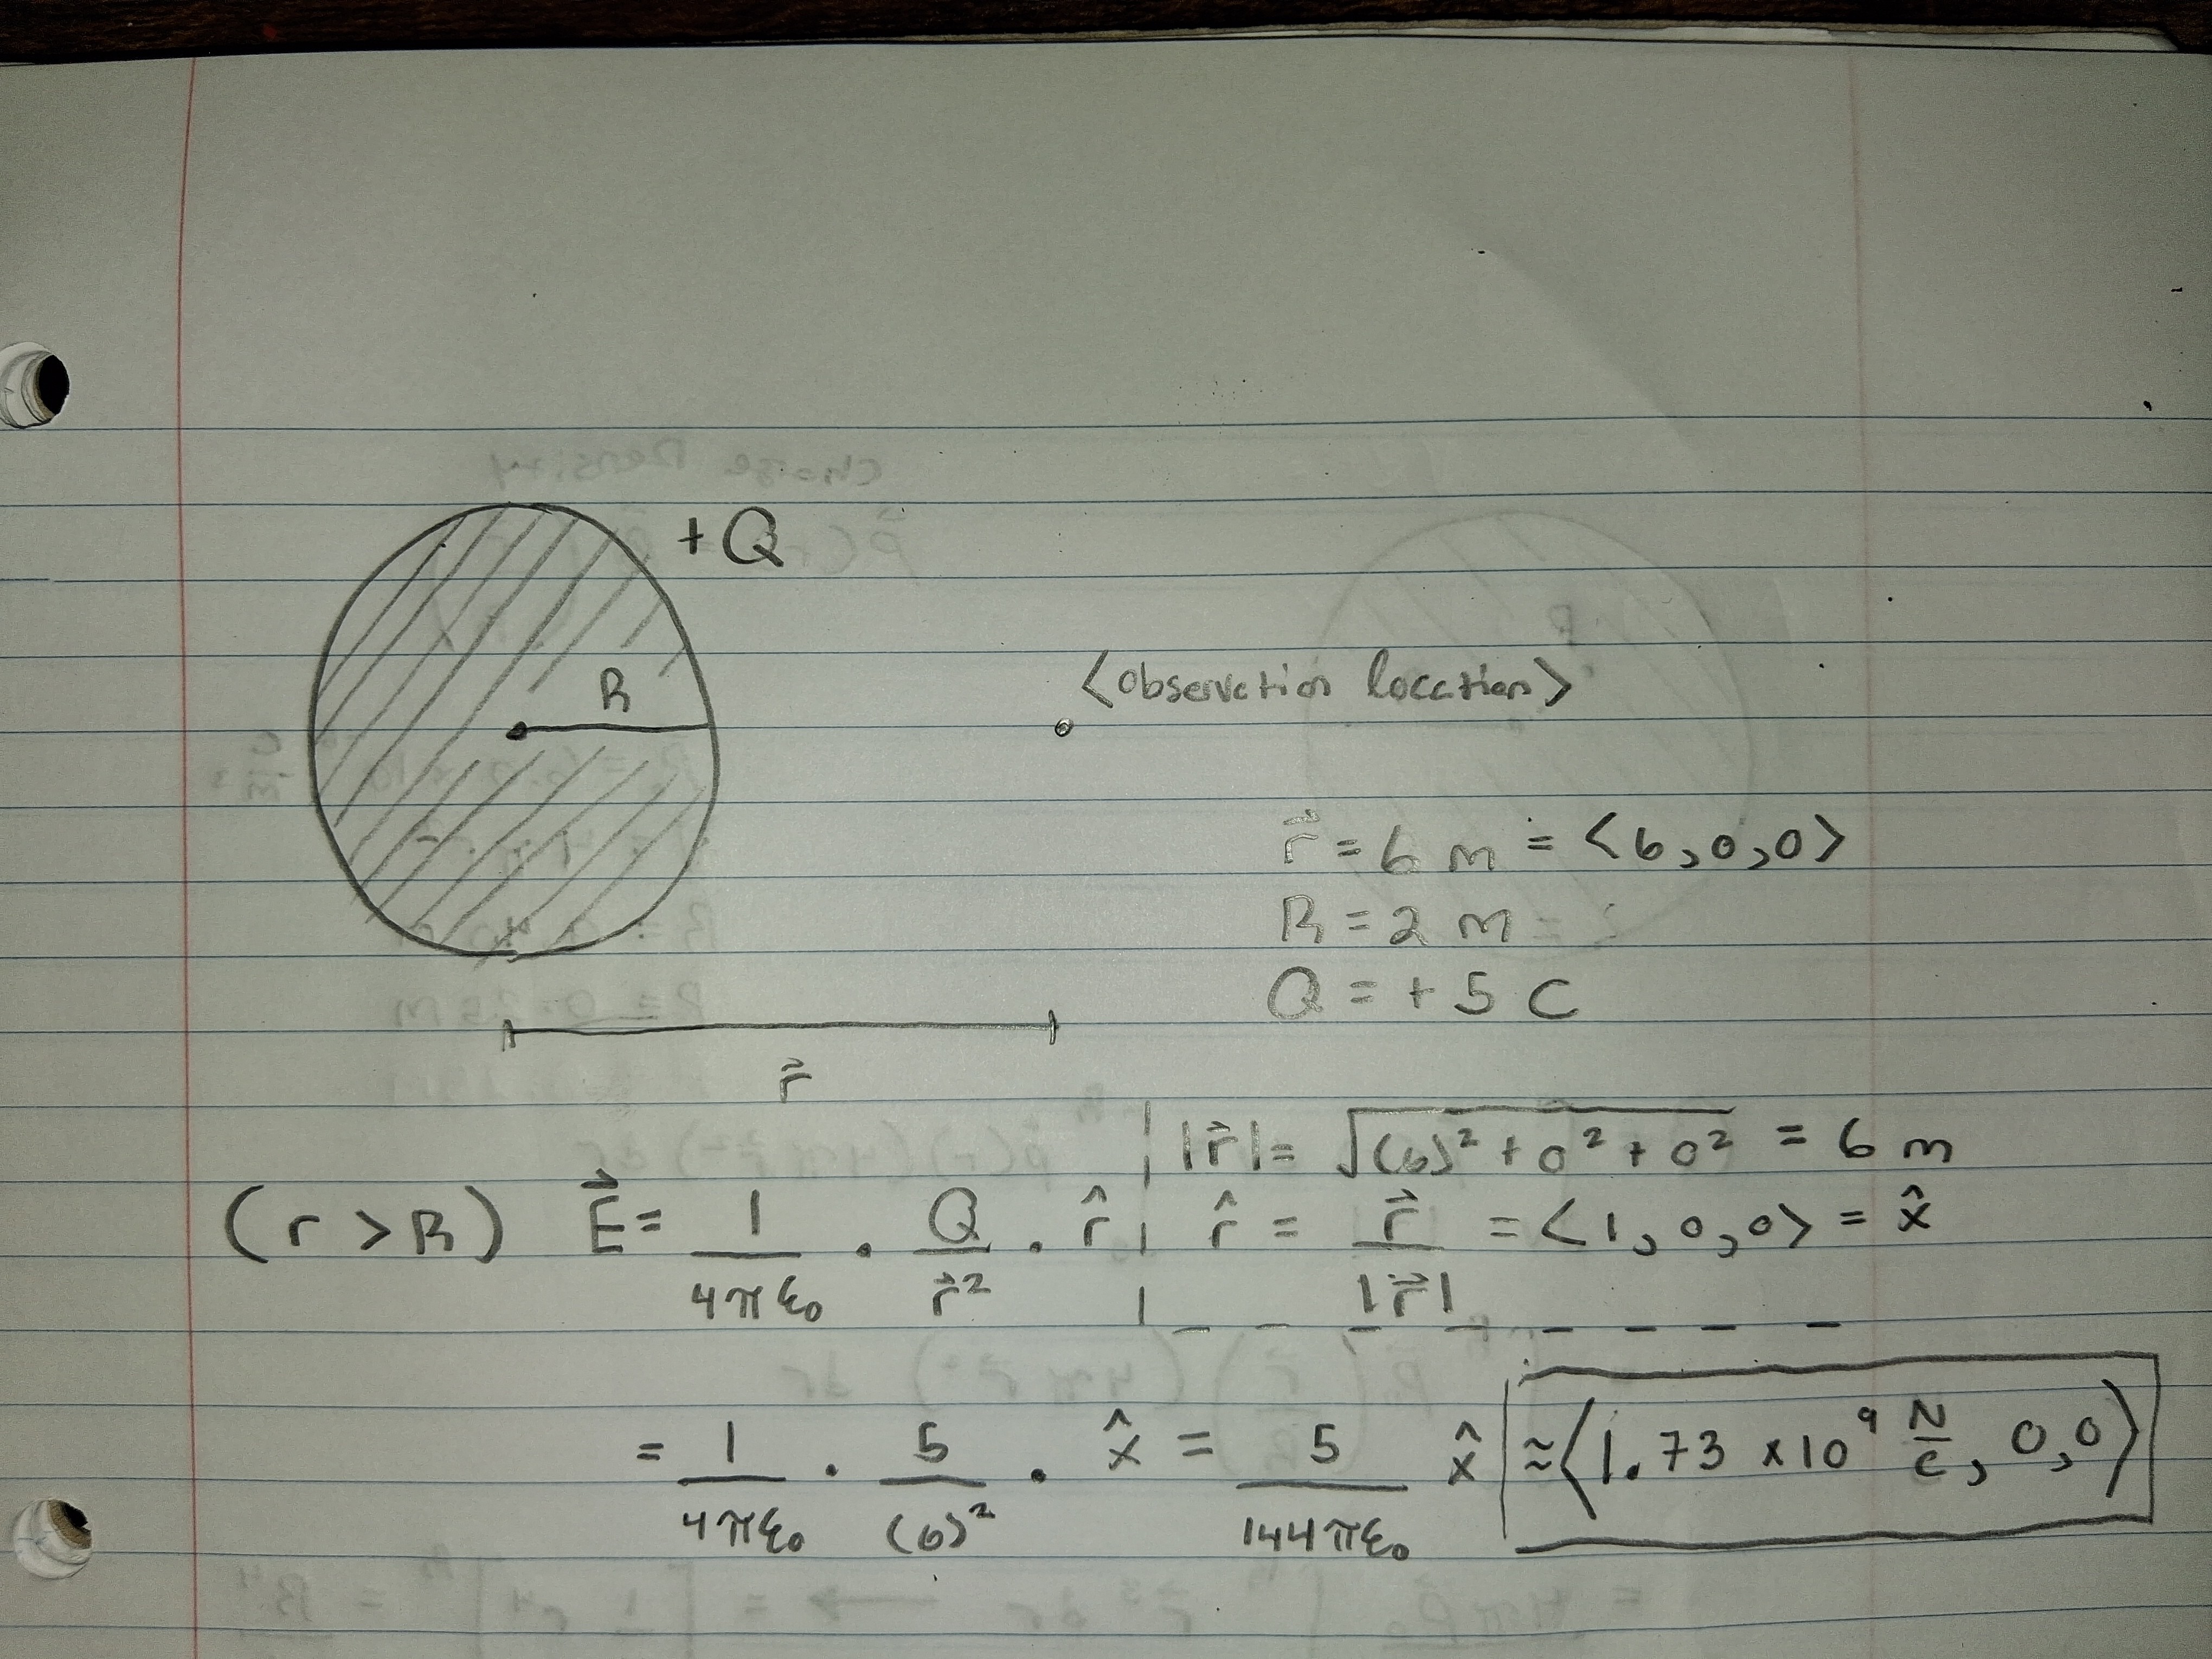 +Q
R
<observation location>
r⃗ = 6 m = <6,0,0>
R = 2 m
Q = + 5 C
r⃗
|r⃗| = √((6)² + 0² + 0²) = 6 m
(r > R) E⃗ = 1/(4πε₀) · Q/r⃗² · r̂ r̂ = r⃗/|r⃗| = <1,0,0> = x̂
= 1/(4πε₀) · 5/(6)² · x̂ = 5/(144πε₀) x̂ ≈ <1.73 x10⁹ N/C, 0,0>